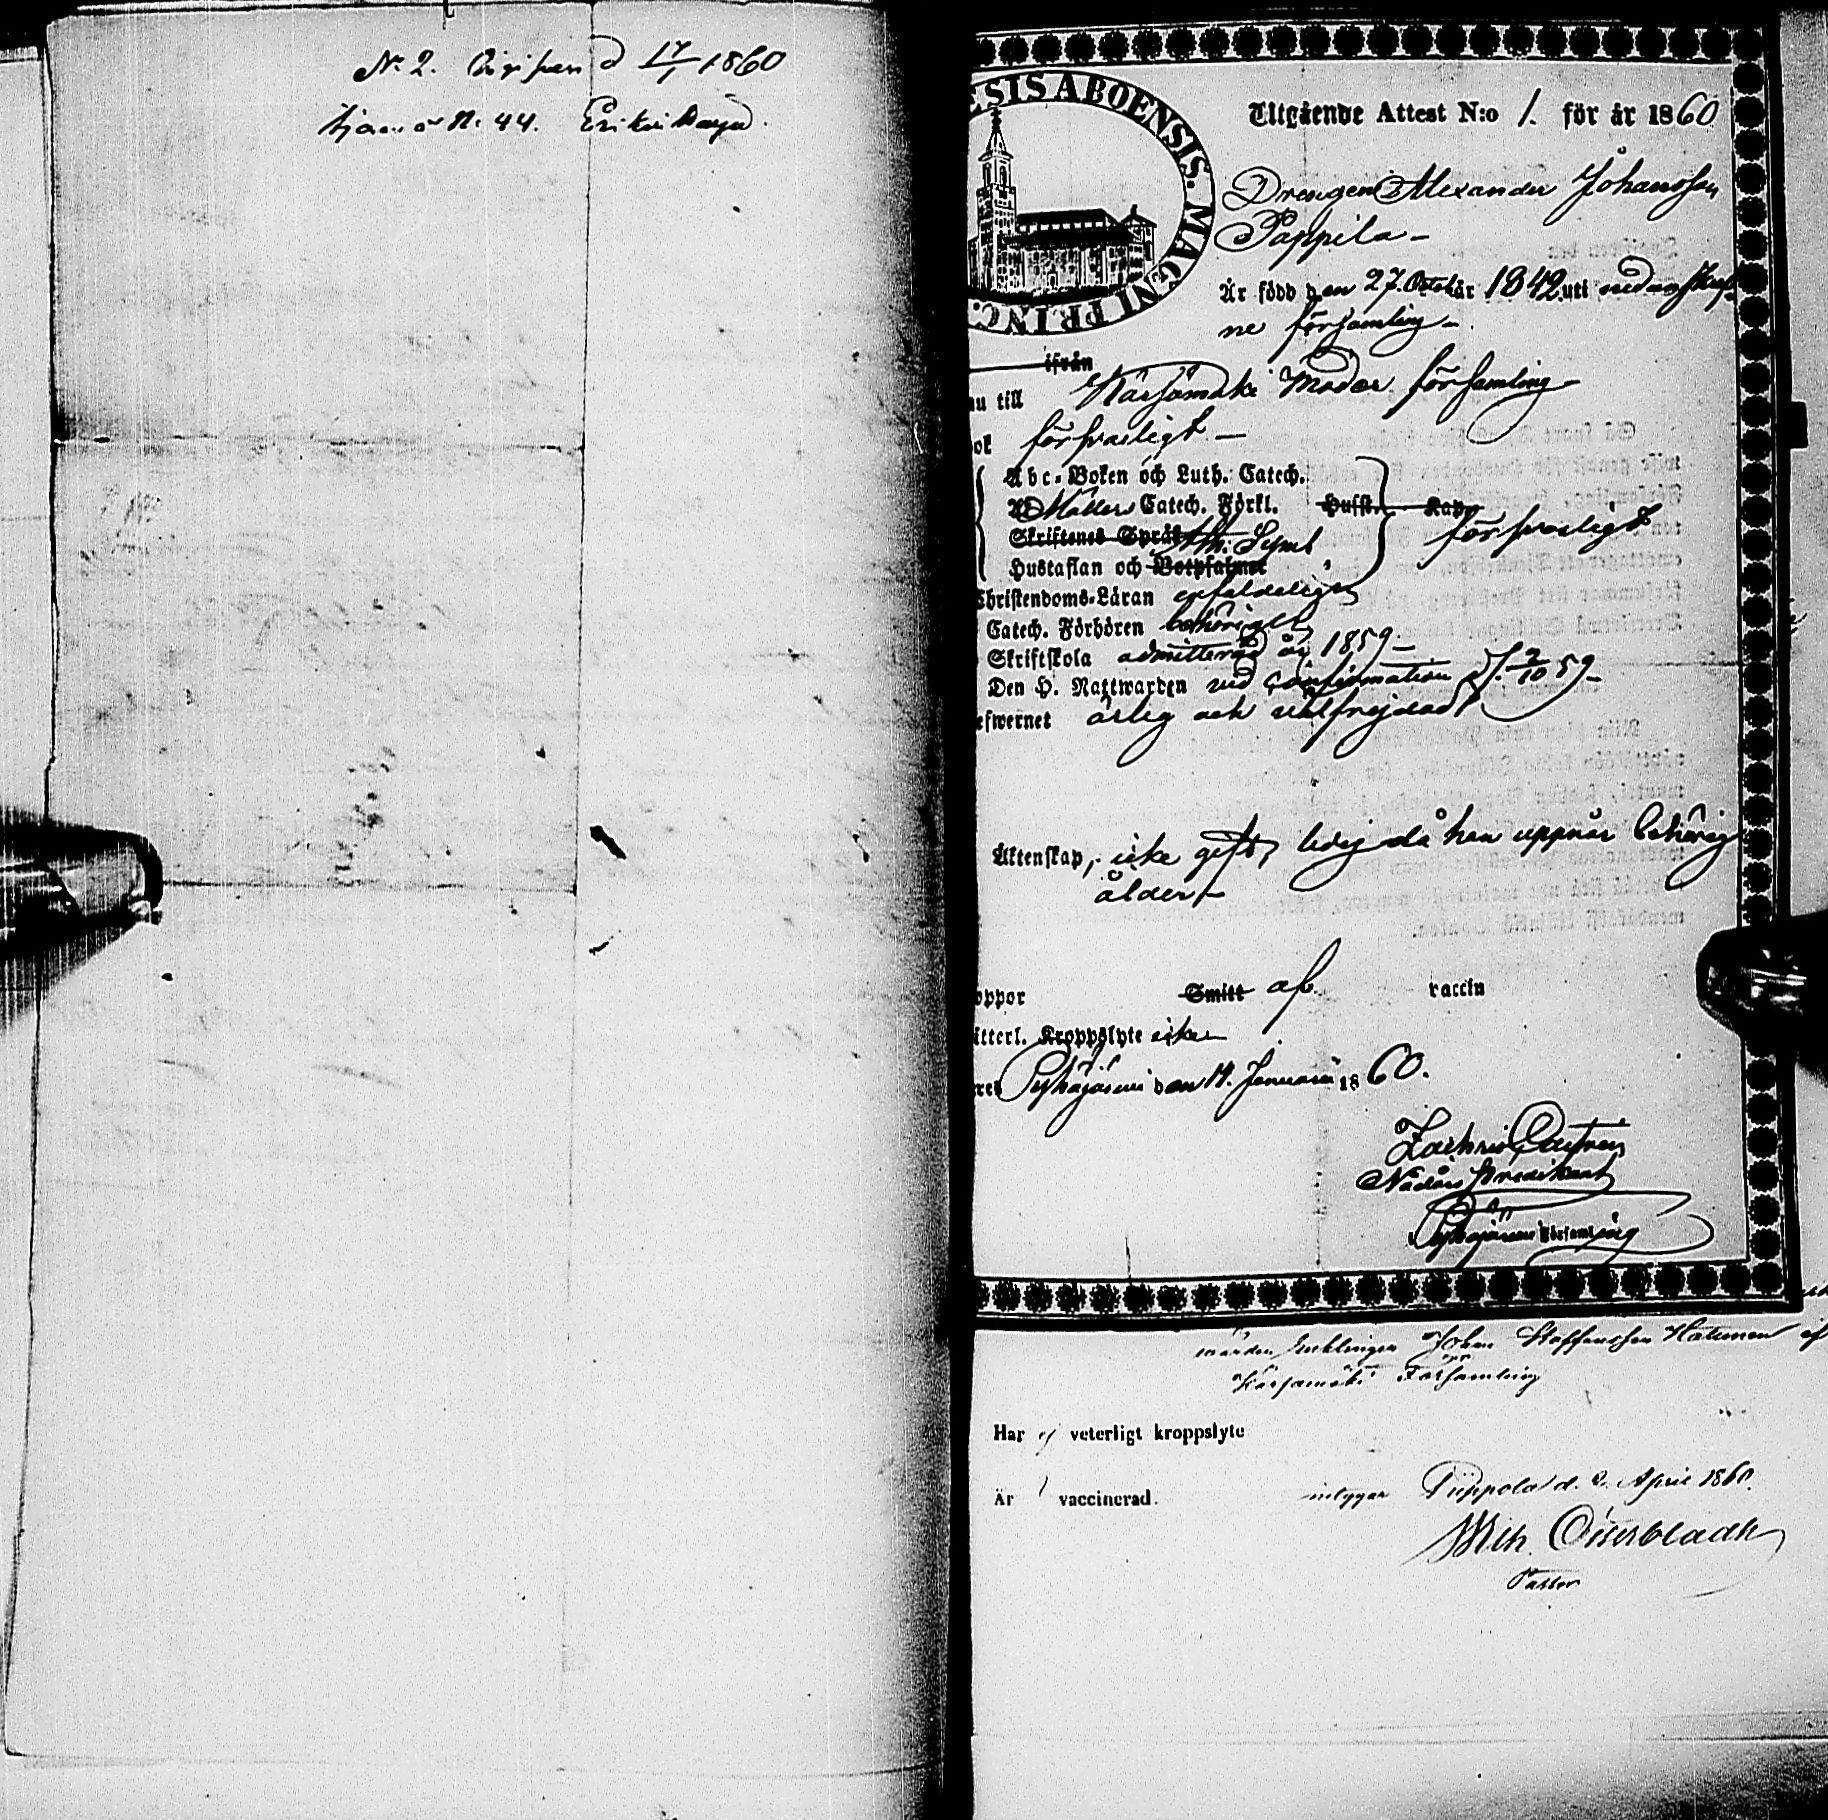 N:o 2. d 17/1 1860
N: 44.
ESIS ABOENSIS. MAGNI PRINC.
Utgående Attest N:o 1. för år 1860
Drengen Alexander Johansson
Pappila –
Är född den 27. Octob år 1842 uti nedanskref-
ne församling –
ifrån
nu till Kärsämäki Moder församling
ok förswarligt –
Abc-Boken och Luth. Catech.
Möllers Catech. Förkl. Hussk. Kapp
Skriftenes Språk Ath. Symb förswarligt
Hustaflan och Botpsalmer
Christendoms-Läran enfaldeligen
Catech. Förhören behörigt
Skriftskola admitterad år 1859 –
Den H. Nattwarden wid confirmation d. 2/10 59 –
efwernet ärlig och wälfrejdad
Äktenskap, icke gift, ledig då han uppnår behörig
ålder –
oppor Smitt af vaccin
itterl. Kroppslyte icke
Pyhäjärwi den 14. Januarii 1860.
Zachris Castrén
Nådårs Predikant
Pyhäjärwi Församling
enklingen Johan Staffansson Hatunen
Kärsämäki Församling
Har ej veterligt kroppslyte
Är vaccinerad. intygar Piippola d. 2. April 1860.
Wilh. Österbladh
Pastor